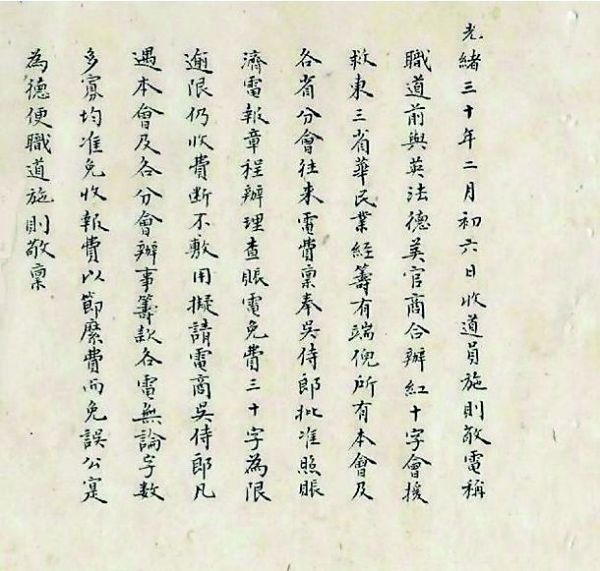 光緒三十年二月初六日收道員施則敬電稱
職道前與英法德美官商合辦紅十字會援
救東三省華民業經籌有端倪所有本會及
各省分會往来電費禀奉吳侍郎批准照賬
濟電報章程辦理查賬電免費三十字為限
逾限仍收費断不敷用擬請電商吳侍郎凡
遇本會及各分會辦事籌款各電無論字數
多寡均准免收報費以節縻費而免誤公寔
為德便職道施則敬禀